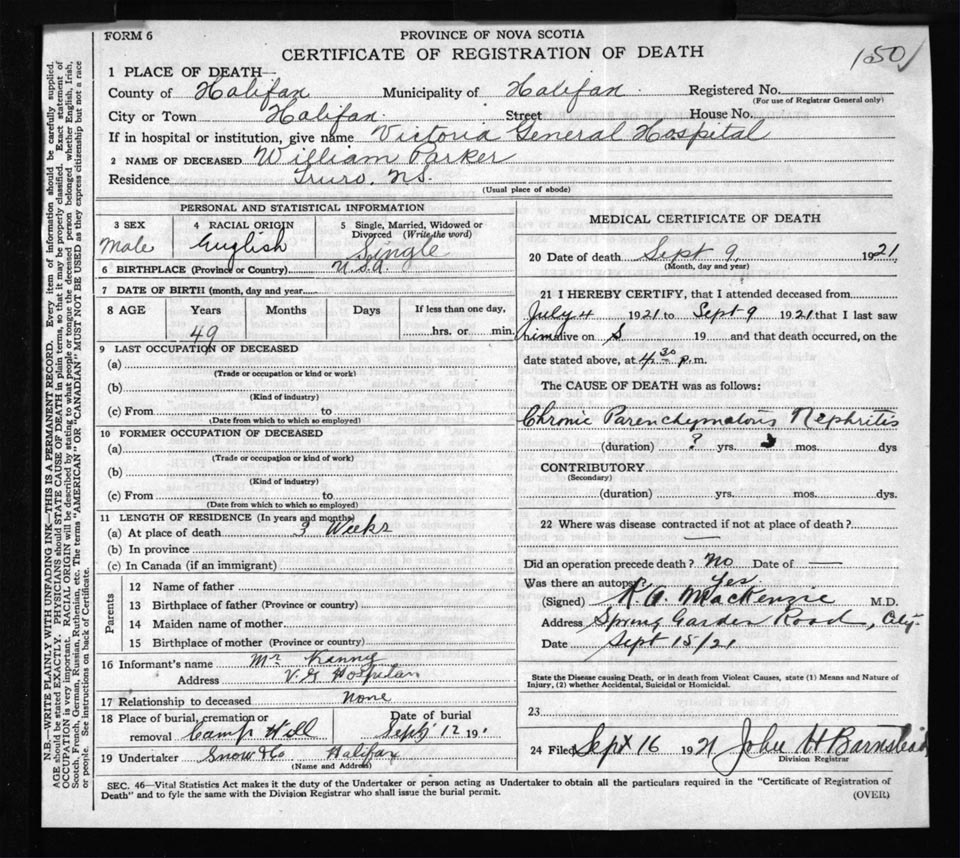 FORM 6
PROVINCE OF NOVA SCOTIA
CERTIFICATE OF REGISTRATION OF DEATH
1 PLACE OF DEATH—
County of Halifax Municipality of Halifax. Registered No.
(For use of Registrar General only)
City or Town Halifax. Street House No.
If in hospital or institution, give name Victoria General Hospital
2 NAME OF DECEASED William Parker
Residence Truro, NS.
(Usual place of abode)
PERSONAL AND STATISTICAL INFORMATION
3 SEX
Male
4 RACIAL ORIGIN
English
5 Single, Married, Widowed or Divorced (Write the word)
Single
6 BIRTHPLACE (Province or Country) U.S.A.
7 DATE OF BIRTH (month, day and year)
8 AGE Years Months Days If less than one day,
49 hrs. or min.
9 LAST OCCUPATION OF DECEASED
(a)
(Trade or occupation or kind or work)
(b)
(Kind of industry)
(c) From to
(Date from which to which so employed)
10 FORMER OCCUPATION OF DECEASED
(a)
(Trade or occupation or kind of work)
(b)
(Kind of industry)
(c) From to
(Date from which to which so employed)
11 LENGTH OF RESIDENCE (In years and months)
(a) At place of death 3 Weeks
(b) In province
(c) In Canada (if an immigrant)
Parents
12 Name of father
13 Birthplace of father (Province or country)
14 Maiden name of mother
15 Birthplace of mother (Province or country)
16 Informant's name Mr
Address V.G Hospital
17 Relationship to deceased None
18 Place of burial, cremation or removal Camp Hill
Date of burial
Sept 12 191
19 Undertaker Snow & Co Halifax
(Name and Address)
MEDICAL CERTIFICATE OF DEATH
20 Date of death Sept 9, 1921
(Month, day and year)
21 I HEREBY CERTIFY, that I attended deceased from
July 4 1921 to Sept 9 1921 that I last saw
him alive on 19 and that death occurred, on the
date stated above, at 4 30 p.m.
The CAUSE OF DEATH was as follows:
Chronic Parenchymatous Nephritis
(duration) ? yrs. mos. dys
CONTRIBUTORY
(Secondary)
(duration) yrs. mos. dys.
22 Where was disease contracted if not at place of death?
—
Did an operation precede death? No Date of —
Was there an autopsy? Yes
(Signed) MacKenzie M.D.
Address Spring Garden Road, City.
Date Sept 15/21
State the Disease causing Death, or in death from Violent Causes, state (1) Means and Nature of
Injury, (2) whether Accidental, Suicidal or Homicidal.
23
24 Filed Sept 16 1921 John H Barnstead
Division Registrar
SEC. 46—Vital Statistics Act makes it the duty of the Undertaker or person acting as Undertaker to obtain all the particulars required in the "Certificate of Registration of
Death" and to fyle the same with the Division Registrar who shall issue the burial permit.
(OVER)
N.B.—WRITE PLAINLY WITH UNFADING INK—THIS IS A PERMANENT RECORD. Every item of information should be carefully supplied.
AGE should be stated EXACTLY. PHYSICIANS should STATE CAUSE OF DEATH in plain terms, so that it may be properly classified. Exact statement of
OCCUPATION is very important. RACIAL ORIGIN will be described by stating to what people or tongue the deceased person belonged whether English, Irish,
Scotch, French, German, Russian, Ruthenian, etc. The terms "AMERICAN" OR "CANADIAN" MUST NOT BE USED as they express citizenship but not a race
or people. See instructions on back of Certificate.